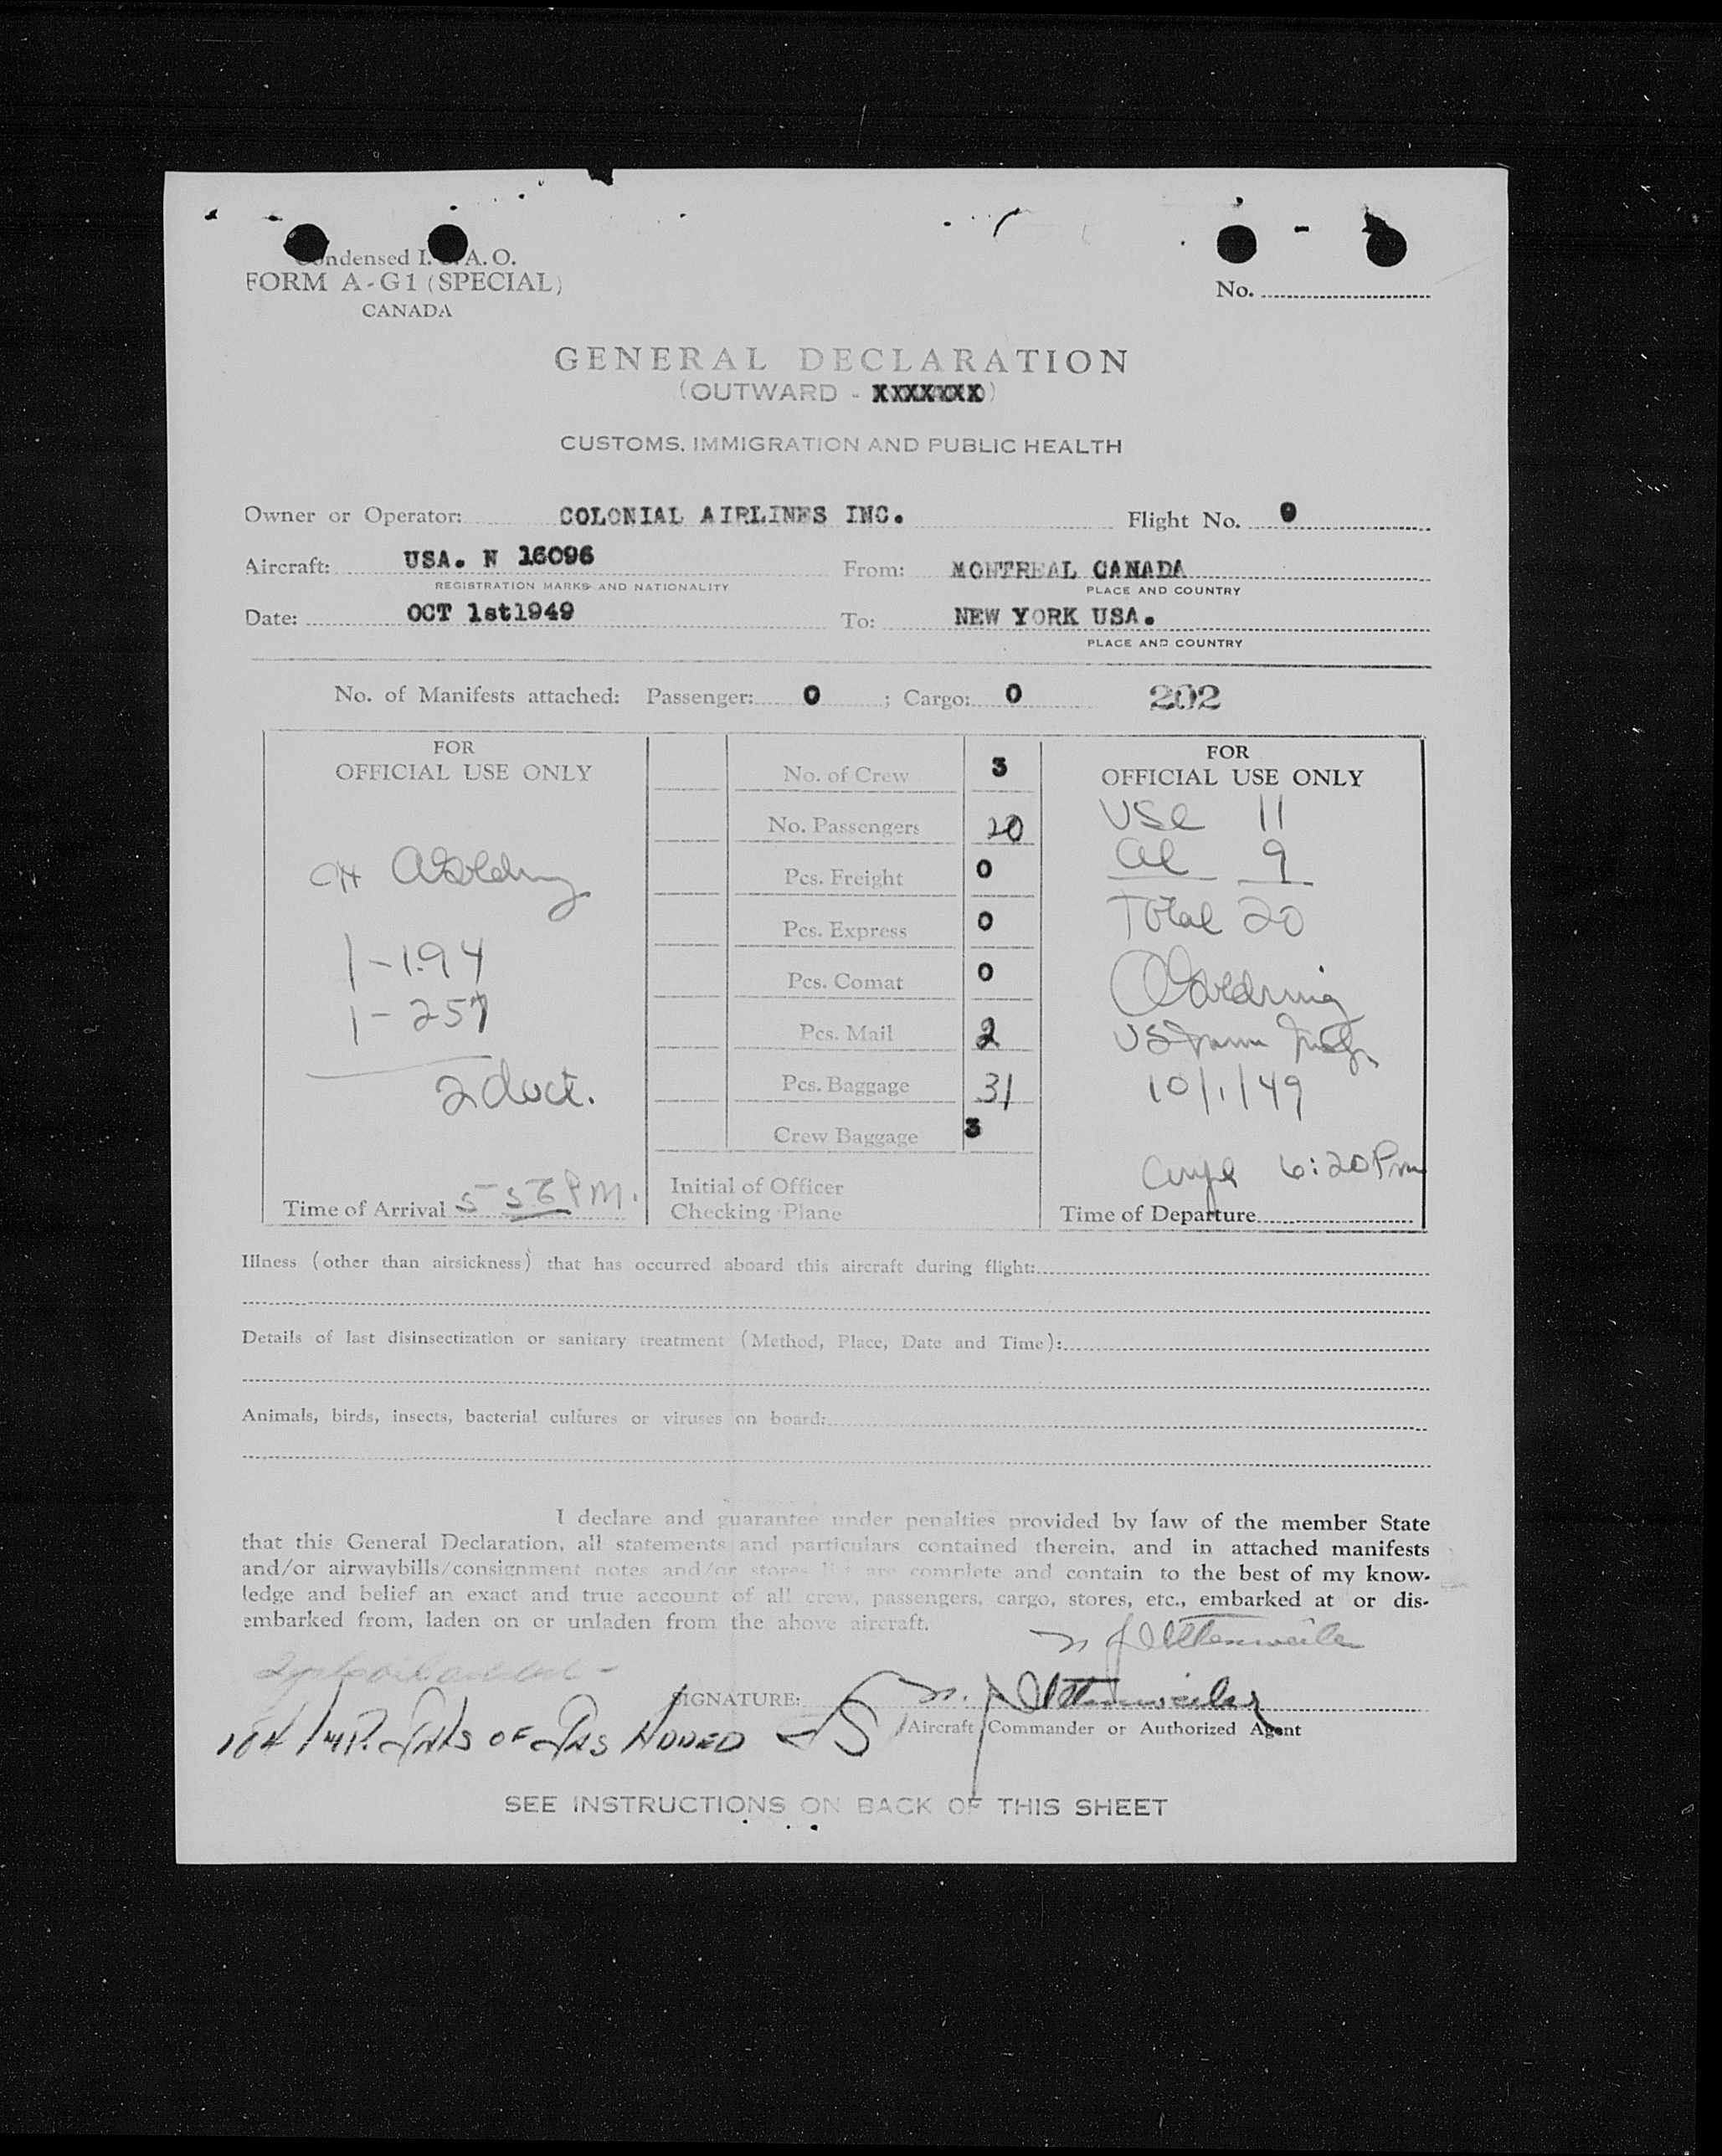 Condensed I. C. A. O.
FORM A-G1 (SPECIAL)
CANADA
No.
GENERAL DECLARATION
(OUTWARD - XXXXXXX)
CUSTOMS, IMMIGRATION AND PUBLIC HEALTH
Owner or Operator: COLONIAL AIRLINES INC. Flight No. 9
Aircraft: USA. N 16096 From: MONTREAL CANADA
REGISTRATION MARKS AND NATIONALITY PLACE AND COUNTRY
Date: OCT 1st1949 To: NEW YORK USA.
PLACE AND COUNTRY
No. of Manifests attached: Passenger: 0 ; Cargo: 0 202
FOR
OFFICIAL USE ONLY
1-194
1-257
2 doct.
Time of Arrival 5 56 PM.
No. of Crew 3
No. Passengers 20
Pcs. Freight 0
Pcs. Express 0
Pcs. Comat 0
Pcs. Mail 2
Pcs. Baggage 31
Crew Baggage 3
Initial of Officer
Checking Plane
FOR
OFFICIAL USE ONLY
USC 11
al 9
Total 20
AGoldring
US Imm Insp
10/1/49
6:20 Pm
Time of Departure
Illness (other than airsickness) that has occurred aboard this aircraft during flight:
Details of last disinsectization or sanitary treatment (Method, Place, Date and Time):
Animals, birds, insects, bacterial cultures or viruses on board:
I declare and guarantee under penalties provided by law of the member State
that this General Declaration, all statements and particulars contained therein, and in attached manifests
and/or airwaybills/consignment notes and/or stores list are complete and contain to the best of my know-
ledge and belief an exact and true account of all crew, passengers, cargo, stores, etc., embarked at or dis-
embarked from, laden on or unladen from the above aircraft.
SIGNATURE:
OF GAS ADDED
Aircraft Commander or Authorized Agent
SEE INSTRUCTIONS ON BACK OF THIS SHEET